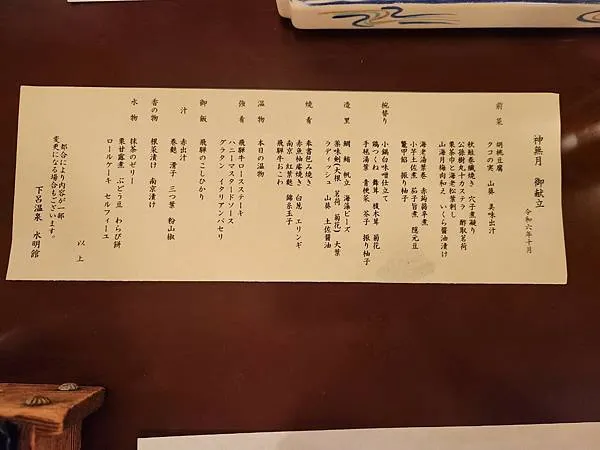 神無月　御献立
令和六年十月
前菜　胡桃豆腐
クコの実　山葵　美味出汁
秋鮭春巻焼き　穴子煮凝り
公孫樹丸十カステラ　酢取茗荷
栗茶巾と海老松葉刺し
山海月梅肉和え　いくら醤油漬け
海老湯葉巻　赤蒟蒻旨煮
小芋土佐煮　茄子旨煮　隠元豆
鼈甲餡　振り柚子
椀替り　小鍋白味噌仕立て
鶏つくね　舞茸　榎木茸　菊花
手毬湯葉　青梗菜　茶子　振り柚子
造里　鯛　鮪　帆立　海藻ビーズ
薬味剣(大根　茗荷　菊花)　大葉
ラディッシュ　山葵　土佐醤油
焼肴　奉書包み焼き
赤魚柚庵焼き　白葱　エリンギ
南京　紅葉麩　錦糸玉子
飛騨牛おこわ
温物　本日の温物
強肴　飛騨牛ロースステーキ
ハニーマスタードソース
グラタン　イタリアンパセリ
御飯　飛騨のこしひかり
汁　赤出汁
巻麩　滑子　三つ葉　粉山椒
香の物　根菜漬け　南京漬け
水物　抹茶のゼリー
栗甘露煮　ぶどう豆　わらび餅
ロールケーキ　セルフィーユ
以上
都合により内容が一部
変更になる場合もございます。
下呂温泉　水明館